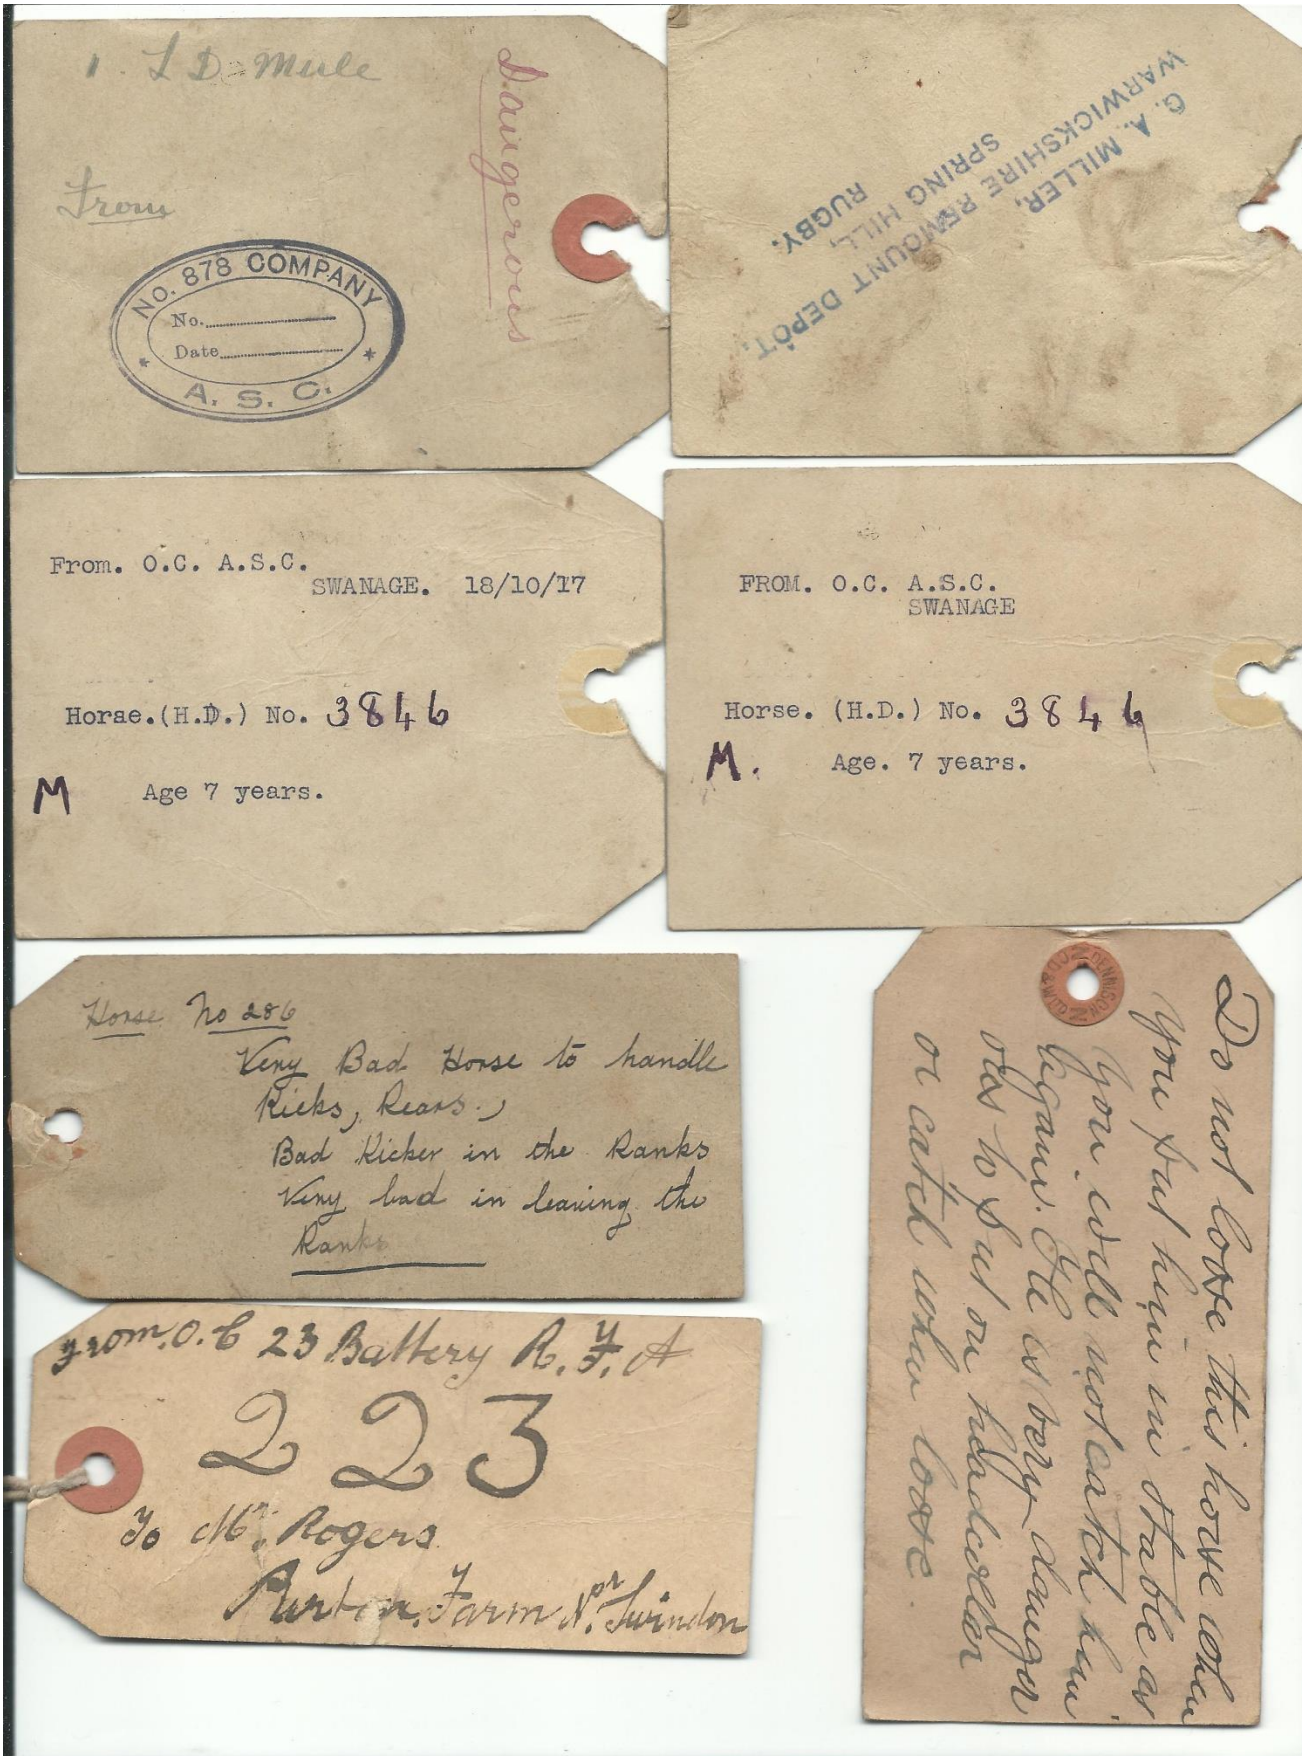 1. L D Mule
Dangerous
From
No. 878 COMPANY
No.
Date
* A. S. C. *
G. A. MILLER,
WARWICKSHIRE REMOUNT DEPÔT,
SPRING HILL,
RUGBY.
From. O.C. A.S.C.
SWANAGE. 18/10/17
Horse.(H.D.) No. 3846
M Age 7 years.
FROM. O.C. A.S.C.
SWANAGE
Horse. (H.D.) No. 3846
M. Age. 7 years.
Horse No 286
Very Bad Horse to handle
Kicks, Rears.,
Bad Kicker in the Ranks
Very bad in leaving the
Ranks
From. O.C 23 Battery R.F.A
223
To Mr. Rogers
Purton. Farm Nr. Swindon
DENNISON
Do not loose this horse when
you put him in stable as
you will not catch him
again. He is very danger
ous to put on headcollar
or catch when loose